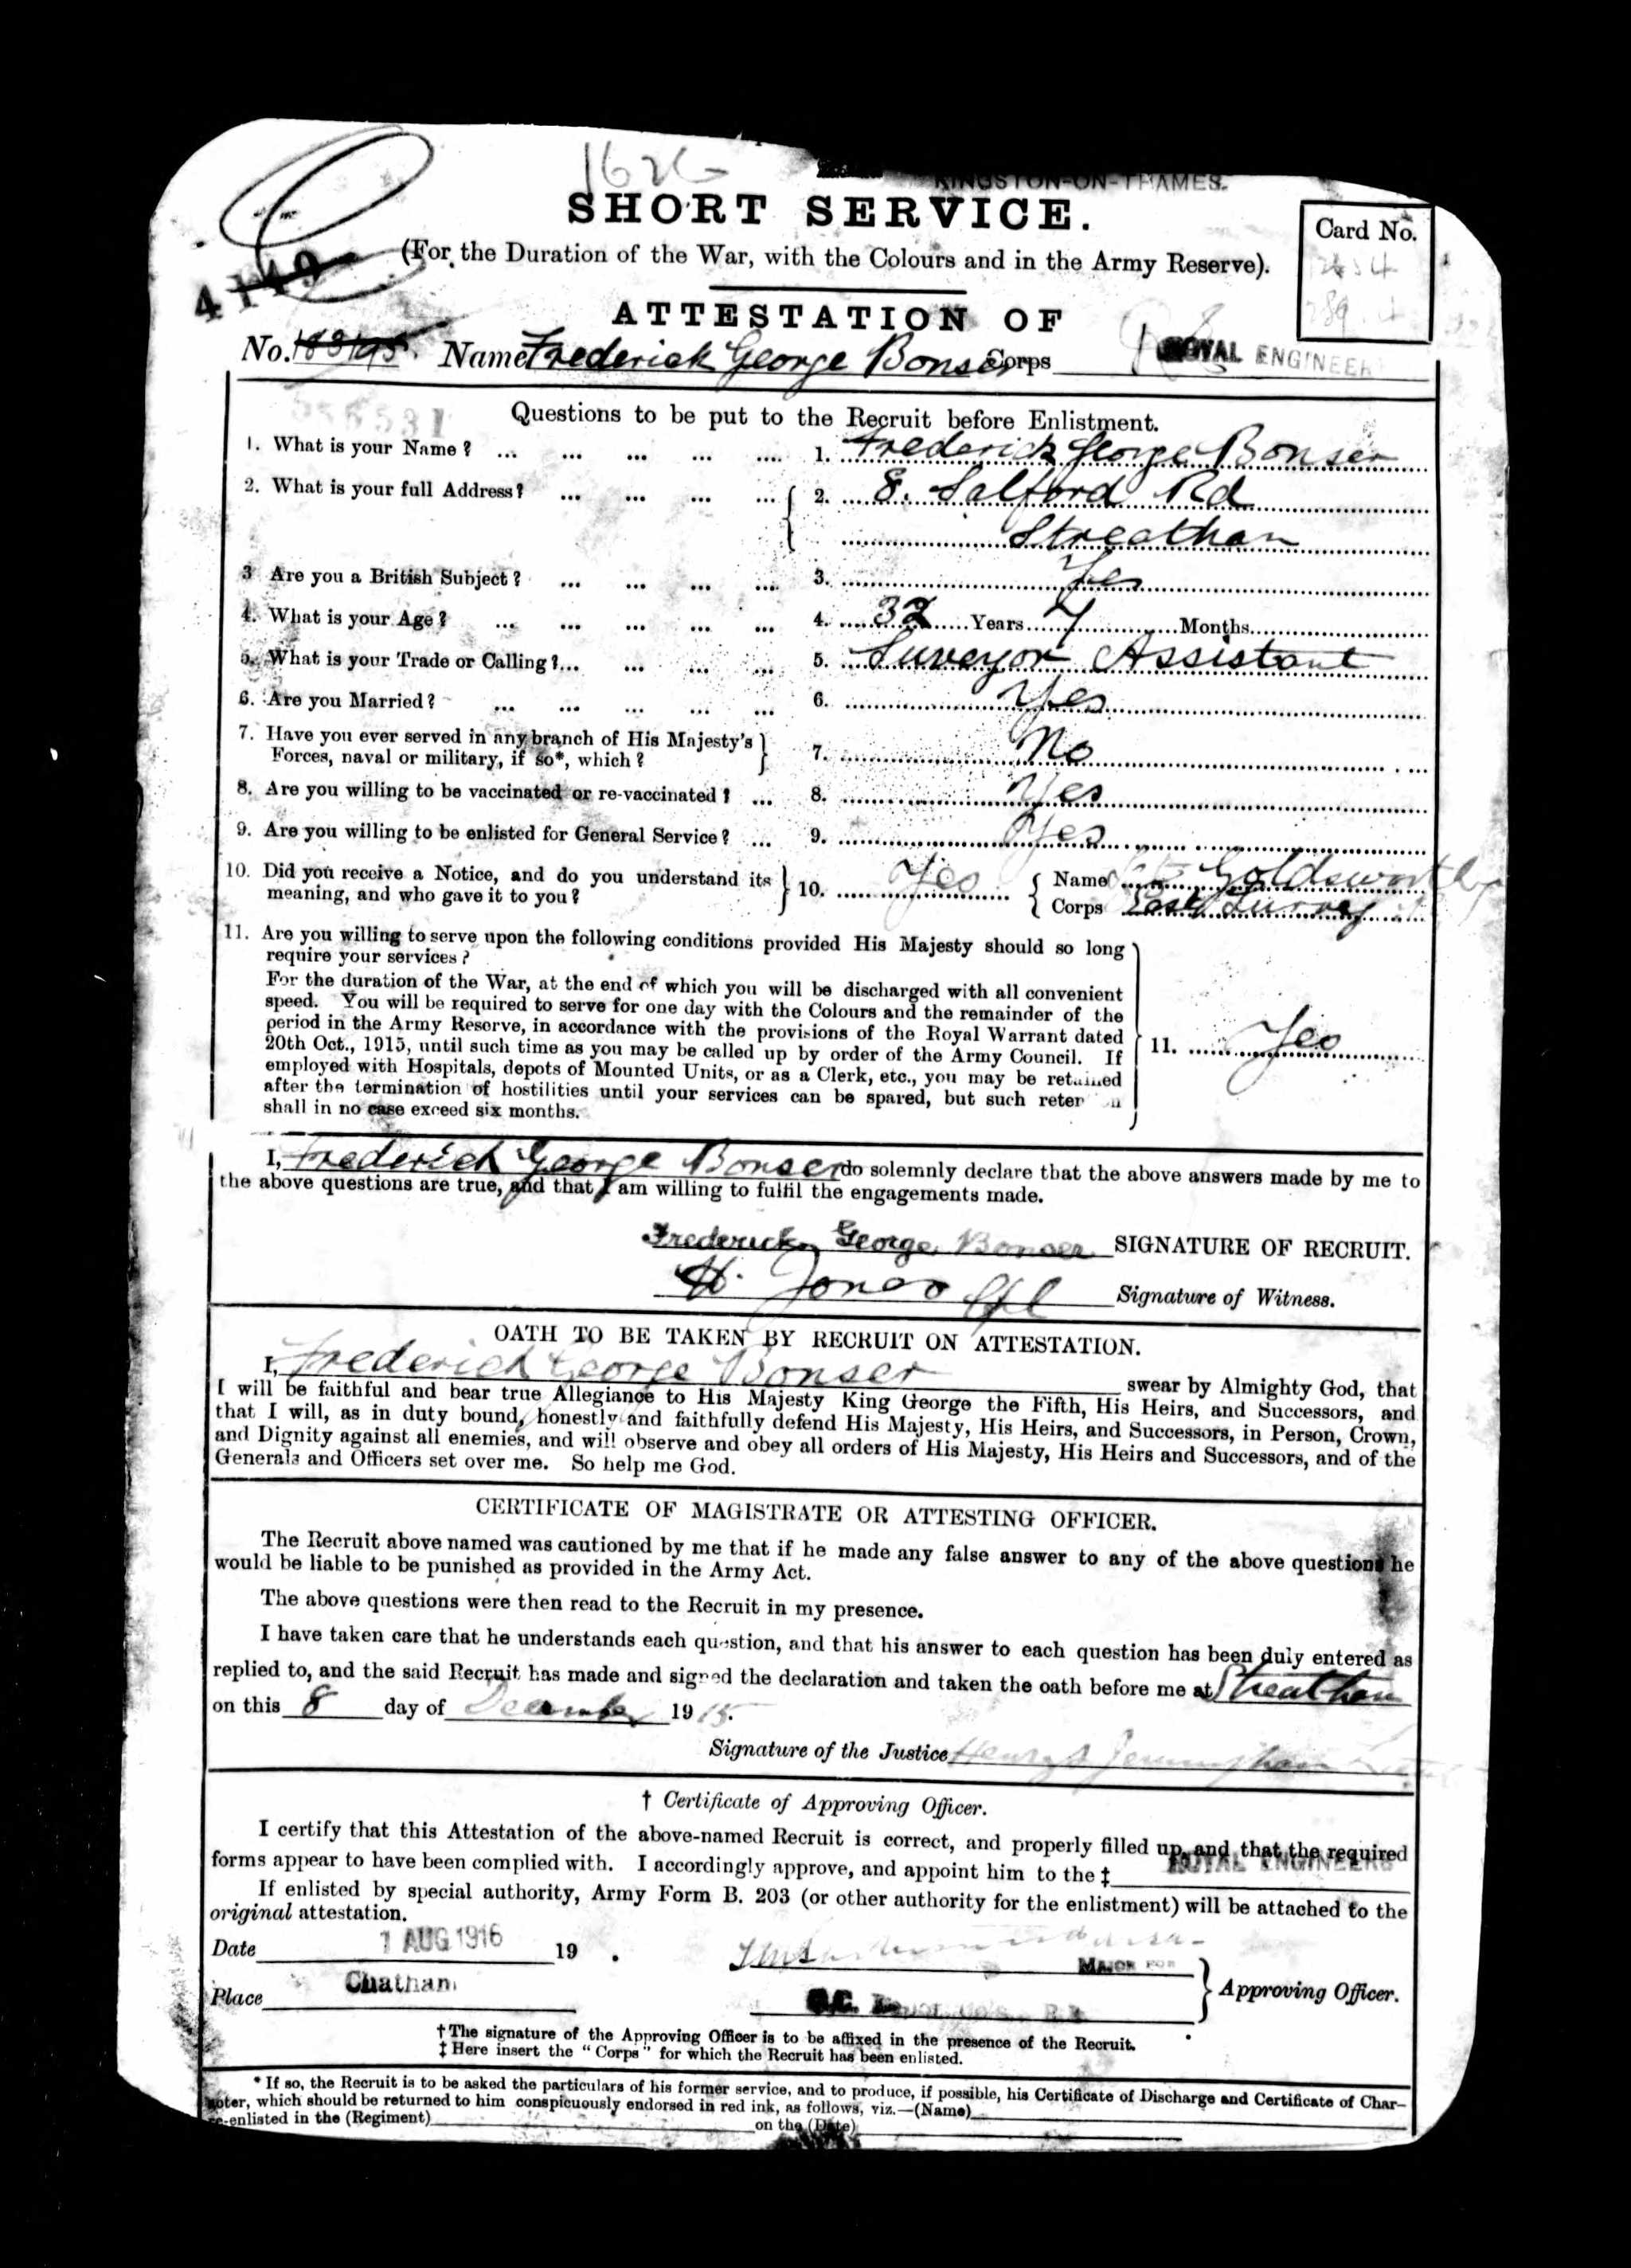 1626
KINGSTON-ON-THAMES.
SHORT SERVICE.
Card No.
(For the Duration of the War, with the Colours and in the Army Reserve).
4149
ATTESTATION OF
No. 183195. Name Frederick George Bonser Corps ROYAL ENGINEER
Questions to be put to the Recruit before Enlistment.
1. What is your Name? ... ... ... ... .... 1. Frederick George Bonser
2. What is your full Address? ... ... ... ... { 2. 8. Salford Rd
Streatham
3 Are you a British Subject? ... ... ... .... 3. Yes
4. What is your Age? ... ... ... ... ... 4. 32 Years 7 Months
5. What is your Trade or Calling?... ... ... ... 5. Surveyor Assistant
6. Are you Married? ... ... ... ... ... 6. Yes
7. Have you ever served in any branch of His Majesty's } 7. No
Forces, naval or military, if so*, which?
8. Are you willing to be vaccinated or re-vaccinated? ... 8. Yes
9. Are you willing to be enlisted for General Service? ... 9. Yes
10. Did you receive a Notice, and do you understand its } 10. Yes { Name Goldsworthy
meaning, and who gave it to you? Corps East Surrey
11. Are you willing to serve upon the following conditions provided His Majesty should so long
require your services?
For the duration of the War, at the end of which you will be discharged with all convenient
speed. You will be required to serve for one day with the Colours and the remainder of the
period in the Army Reserve, in accordance with the provisions of the Royal Warrant dated
20th Oct., 1915, until such time as you may be called up by order of the Army Council. If } 11. Yes
employed with Hospitals, depots of Mounted Units, or as a Clerk, etc., you may be retained
after the termination of hostilities until your services can be spared, but such
shall in no case exceed six months.
I, Frederick George Bonser do solemnly declare that the above answers made by me to
the above questions are true, and that I am willing to fulfil the engagements made.
Frederick George Bonser SIGNATURE OF RECRUIT.
H. Jones Signature of Witness.
OATH TO BE TAKEN BY RECRUIT ON ATTESTATION.
I, Frederick George Bonser swear by Almighty God, that
I will be faithful and bear true Allegiance to His Majesty King George the Fifth, His Heirs, and Successors, and
that I will, as in duty bound, honestly and faithfully defend His Majesty, His Heirs, and Successors, in Person, Crown,
and Dignity against all enemies, and will observe and obey all orders of His Majesty, His Heirs and Successors, and of the
Generals and Officers set over me. So help me God.
CERTIFICATE OF MAGISTRATE OR ATTESTING OFFICER.
The Recruit above named was cautioned by me that if he made any false answer to any of the above questions he
would be liable to be punished as provided in the Army Act.
The above questions were then read to the Recruit in my presence.
I have taken care that he understands each question, and that his answer to each question has been duly entered as
replied to, and the said Recruit has made and signed the declaration and taken the oath before me at Streatham
on this 8 day of December 1915.
Signature of the Justice Henry
† Certificate of Approving Officer.
I certify that this Attestation of the above-named Recruit is correct, and properly filled up, and that the required
forms appear to have been complied with. I accordingly approve, and appoint him to the ‡ ROYAL ENGINEERS
If enlisted by special authority, Army Form B. 203 (or other authority for the enlistment) will be attached to the
original attestation.
Date 1 AUG 1916 19 .
MAJOR FOR
Place Chatham } Approving Officer.
† The signature of the Approving Officer is to be affixed in the presence of the Recruit.
‡ Here insert the "Corps" for which the Recruit has been enlisted.
* If so, the Recruit is to be asked the particulars of his former service, and to produce, if possible, his Certificate of Discharge and Certificate of Char-
acter, which should be returned to him conspicuously endorsed in red ink, as follows, viz.—(Name)
re-enlisted in the (Regiment) on the (Date)